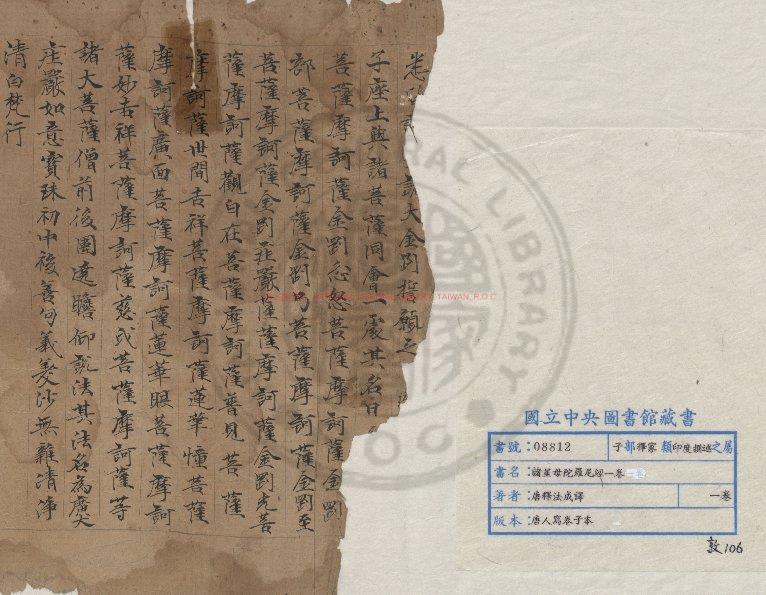 悉 諸大金剛誓願之
子座上與諸菩薩同會一處其名曰
菩薩摩訶薩金剛忿怒菩薩摩訶薩金剛
部菩薩摩訶薩金剛弓菩薩摩訶薩金剛至
菩薩摩訶薩金剛莊嚴菩薩摩訶薩金剛光菩
薩摩訶薩觀自在菩薩摩訶薩普見菩薩
摩訶薩世間吉祥菩薩摩訶薩蓮華幢菩薩
摩訶薩廣面菩薩摩訶薩蓮華眼菩薩摩訶
薩妙吉祥菩薩摩訶薩慈氏菩薩摩訶薩等
諸大菩薩僧前後圍遶瞻仰說法其法名為廣大
庄嚴如意寶珠初中後善句義羙妙無雜清淨
清白梵行
國立中央圖書館藏書
書號:08812 子部釋家類印度撰述之屬
書名:諸星母陀羅尼經一卷
著者:唐釋法成譯 一卷
版本:唐人寫卷子本
敦106
CENTRAL LIBRARY
TAIWAN, R.O.C